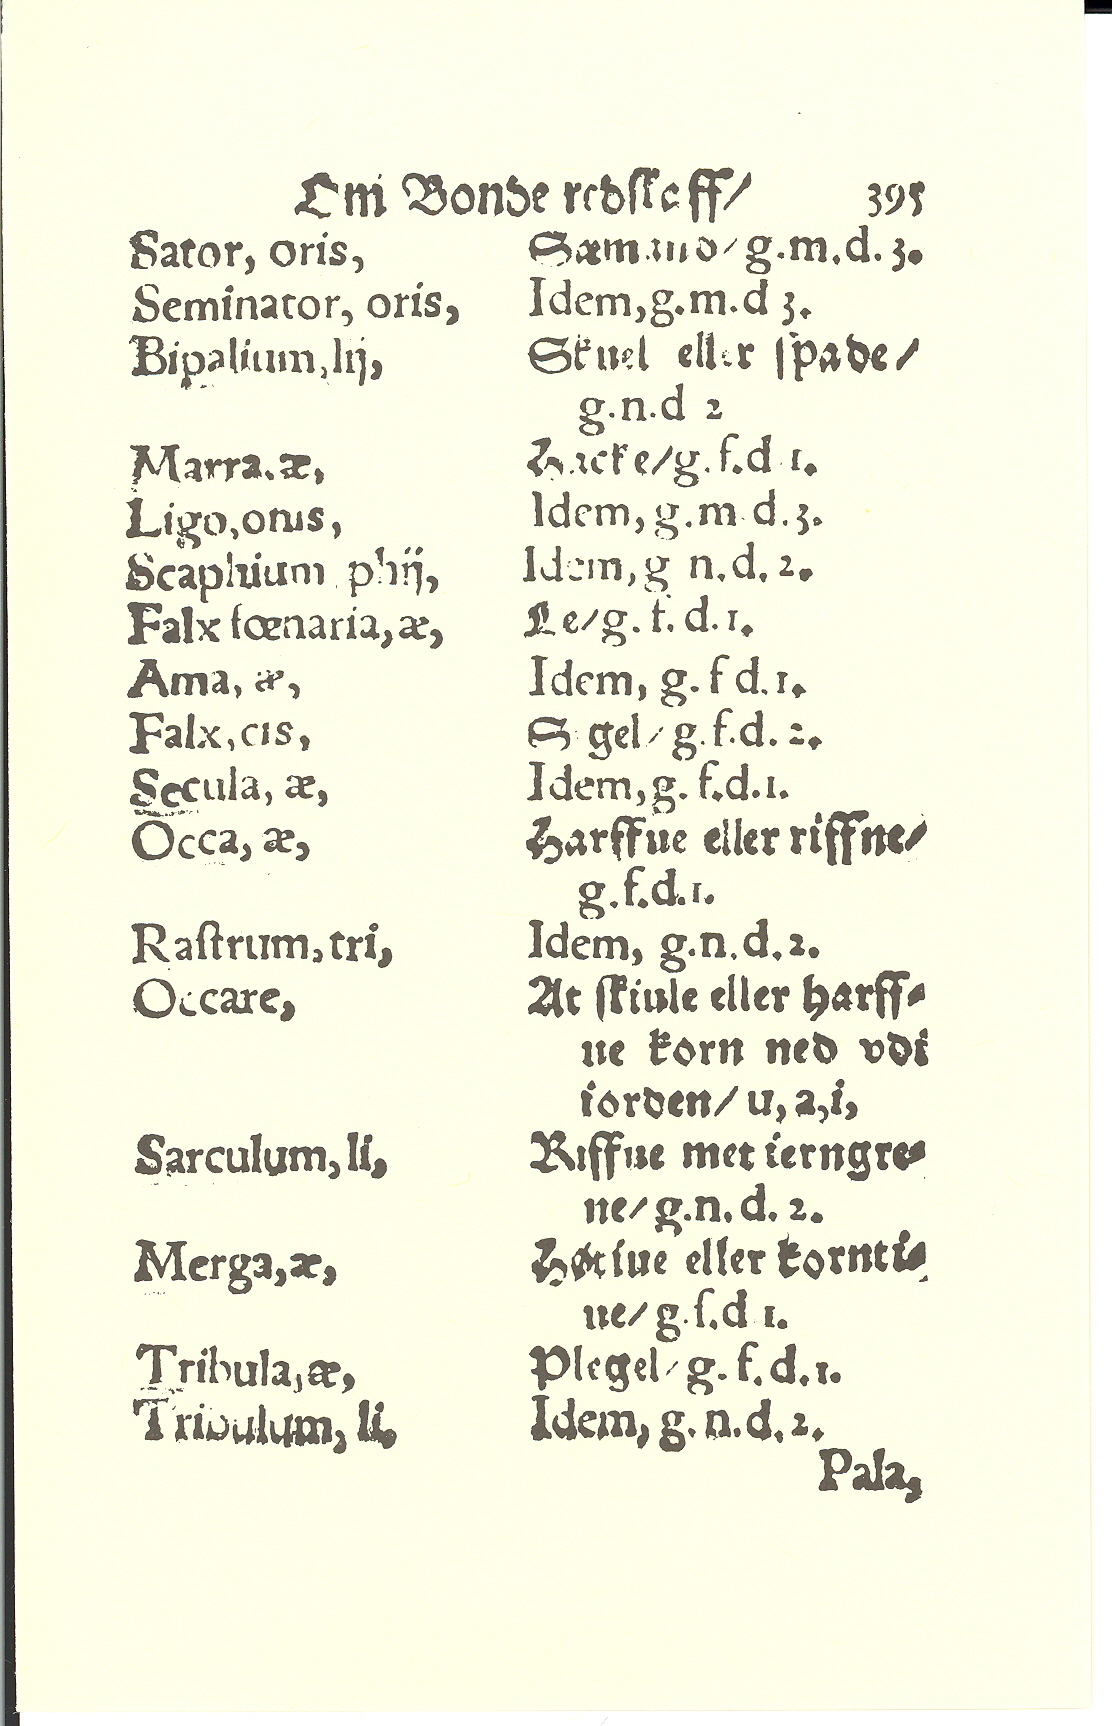 Om Bonde redskaff/ 395
Sator, oris, Sæmand/ g.m.d. 3.
Seminator, oris, Idem,g.m.d 3.
Bipalium,lij, Skuel eller spade/
g.n.d 2
Marra.æ, Hacke/g. f.d 1.
Ligo,onis, Idem, g.m d.3.
Scaphium phij, Idem,g n.d. 2.
Falx fœnaria,æ, Le/g. f. d.1.
Ama, æ, Idem, g. f d.1.
Falx,cis, Sigel/ g.f.d. 2.
Secula, æ, Idem,g. f.d.1.
Occa, æ, Harffue eller riffne/
g.f.d.1.
Raſtrum,tri, Idem, g.n.d.2.
Occare, At ſkiule eller harff-
ue korn ned vdi
iorden/ u, a,i,
Sarculum, li, Riffue met ierngre-
ne/ g.n.d. 2.
Merga,æ, Høtiue eller kornti-
ue/ g.f.d 1.
Tribula,æ, Plegel/ g. f.d.1.
Tribulum, li, Idem, g. n.d.2.
Pala,